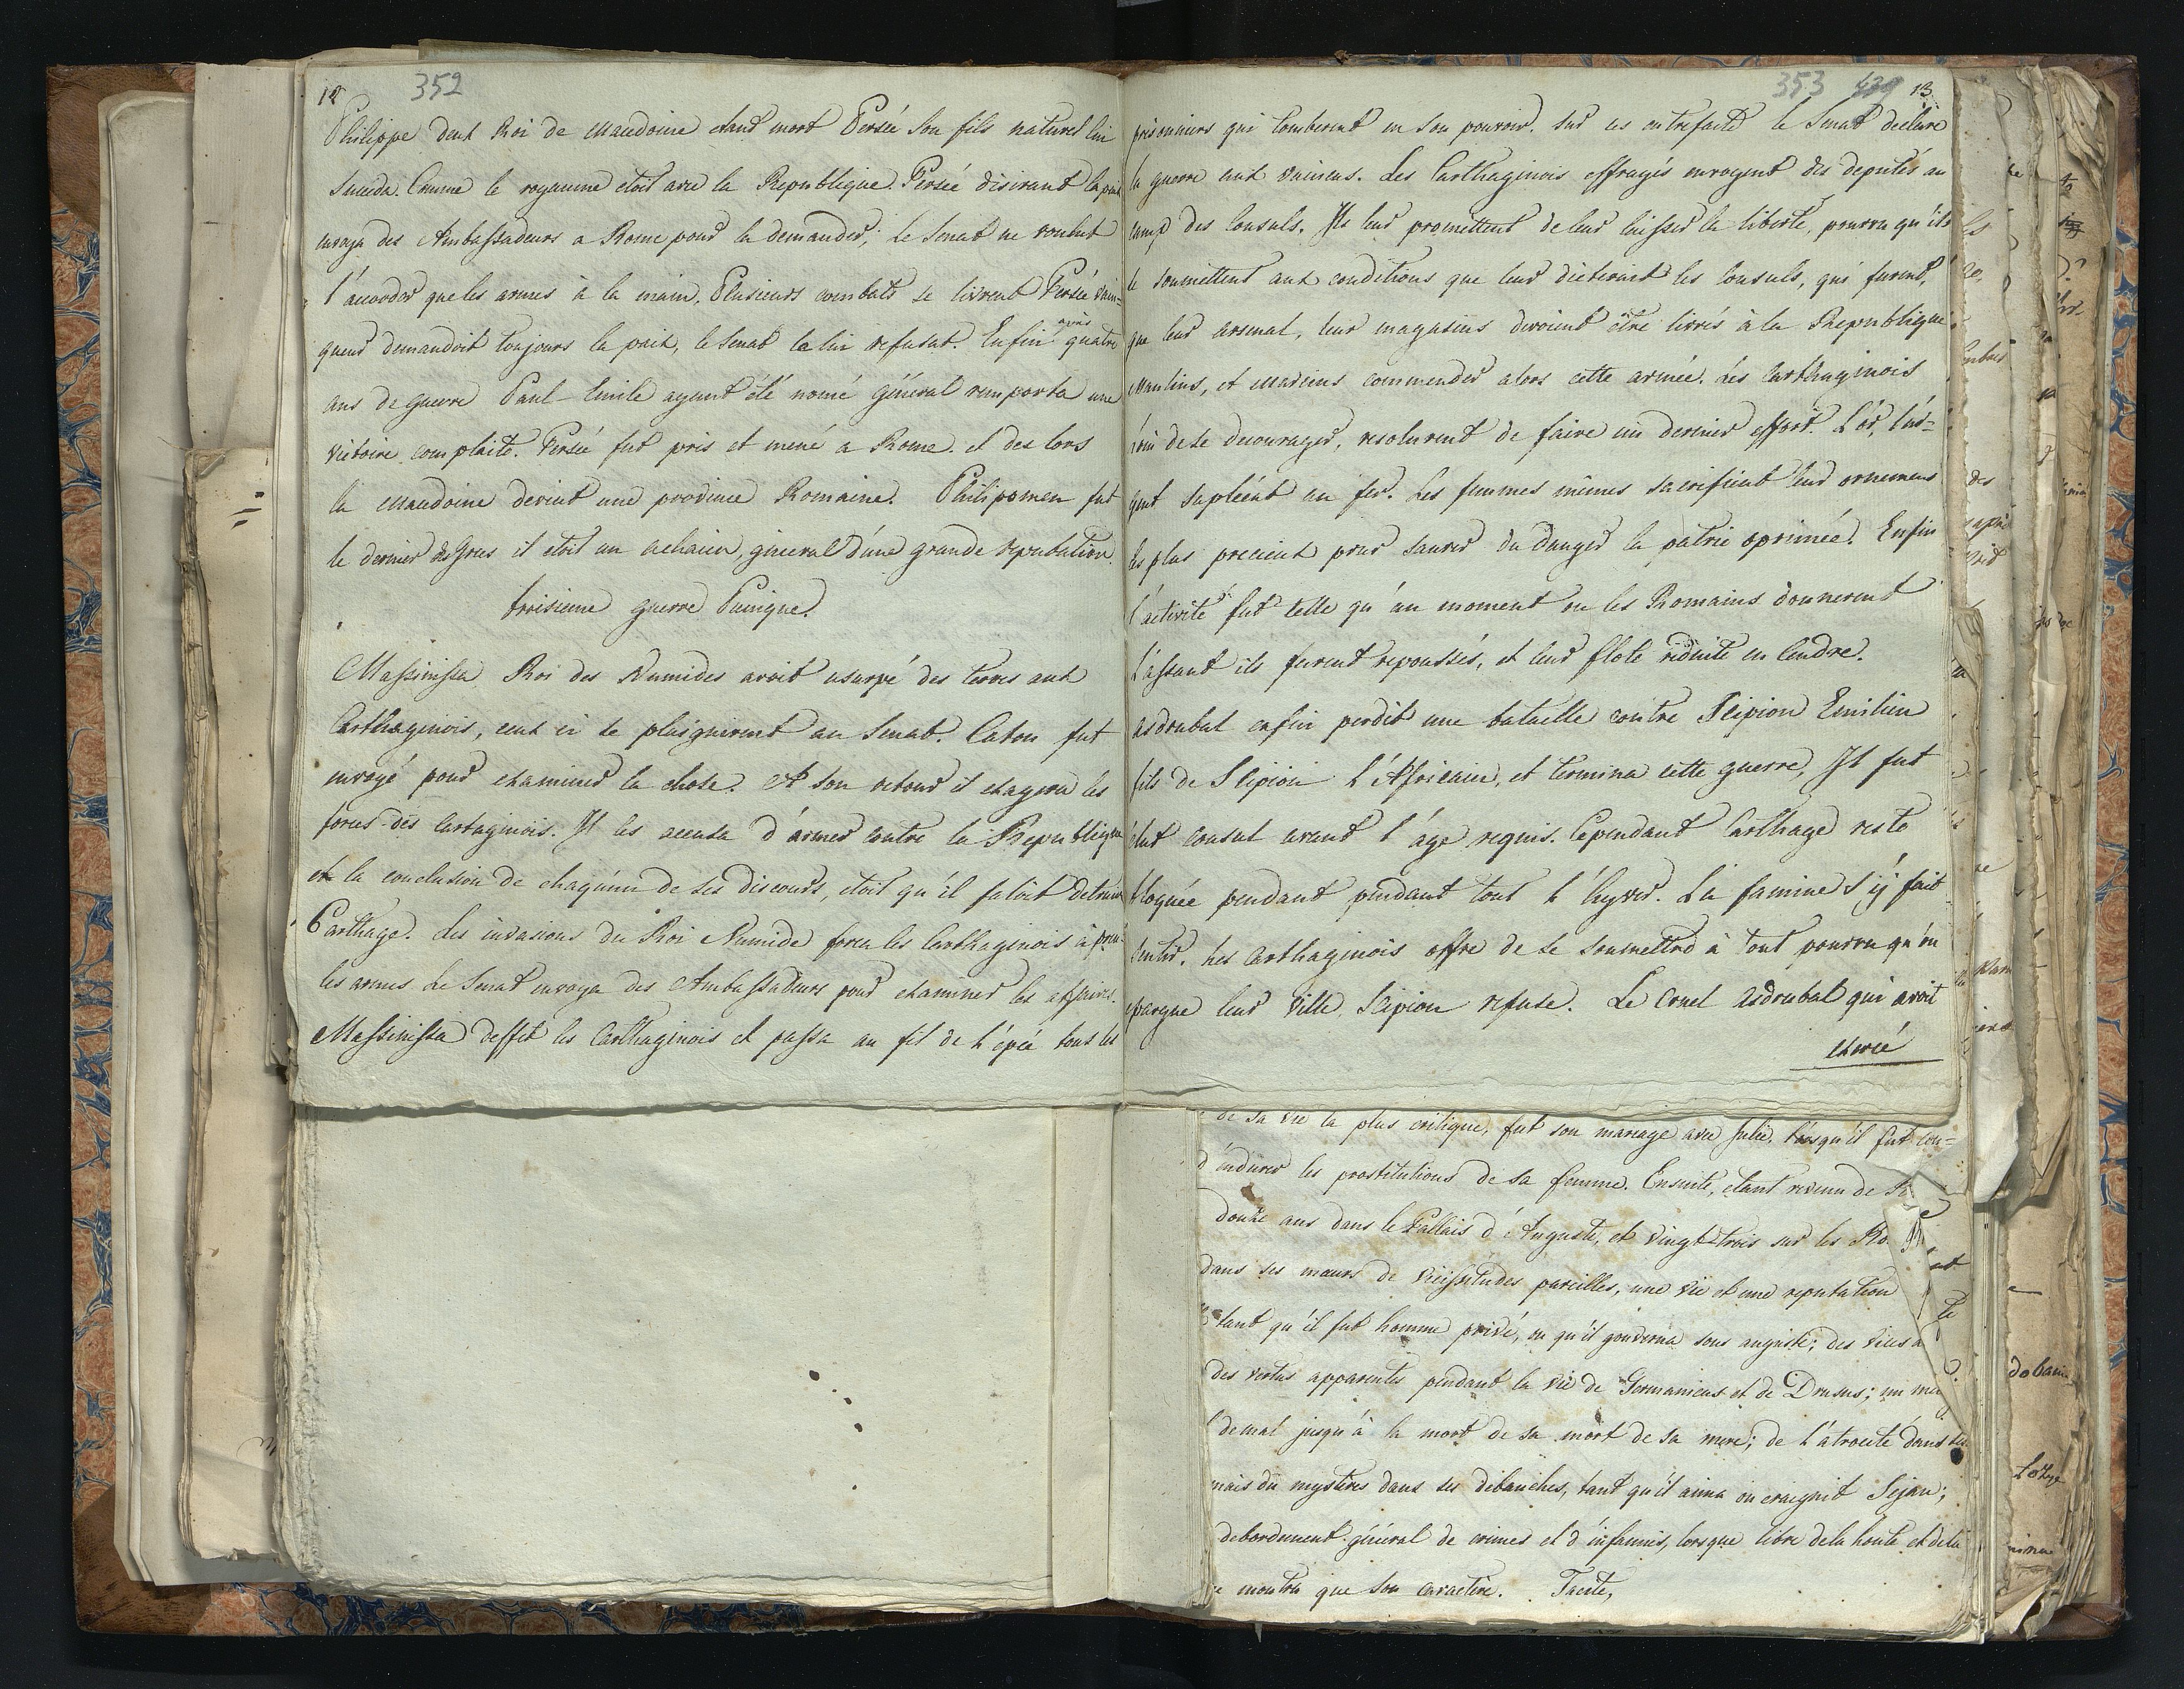 12 352
Philippe dent Roi de Macedoine etant mort Persée son fils naturel lui
succeda. Comme le royaume etoit avec la Republique. Persée disirant la paix
envoya des Ambassadeurs a Rome pour la demander; Le Senat ne voulut
l'accorder que les armes à la main. Plusieurs combats se livrent Persée vain-
queur demandoit toujours la paix, le Senat la lui refusat. Enfin après quatre
ans de guerre Paul Emile ayant été nomé général remporta une
victoire complaite. Persée fut pris et mené a Rome. et des lors
la Macedoine devint une province Romaine. Philipomen fut
le dernier des Grecs il etoit un achaien, géneral d'une grande reputation.
troisieme guerre Punique.
Massinissa Roi des Numides avoit usurpé des terres aux
Carthaginois, ceux ci se plaignirent au Senat. Caton fut
envoyé pour examiner la chose. A son retour il exagera les
forces des Cartaginois. Il les accusa d'armer contre la Republique
et la conclusion de chaqu'un de ses discours, etoit qu'il faloit detruire
Carthage. Les invasions du Roi Numide forca les Carthaginois à pren-
les armes Le Senat envoya des Ambassadeurs pour examiner les affaires.
Massinissa deffit les Carthaginois et passa au fil de l'épée tous les
353 439 13
prisonniers qui tomberent en son pouvoir. Sur ces entrefaite le Senat déclare
la guerre aux vaincus. Les Carthaginois effrayés envoyent des deputés au
camp des Consuls. Ils leur promettent de leur laisser la liberté, pourvu qu'ils
se soumettent aux conditions que leur dicterait les Consuls, qui furent,
que leur arsenal, leur magasins devoient être livrés à la Republique
Manlius, et Marcius commender alors cette armée. Les Carthaginois
loin de se decourager, resolurent de faire un dernier effort. L'or, l'ar=
gent supléent au fer. Les femmes mêmes sacrifient leur ornemens
les plus precieux pour sauver du danger la patrie oprimée. Enfin
l'activité fut telle qu'au moment ou les Romains donnerent
l'assaut ils furent repoussés, et leur flote réduite en Cendre.
Asdrubal enfin perdit une bataille contre Scipion Emilien
fils de Scipion l'Africain, et termina cette guerre, Il fut
élut consul avant l'âge requis. Cependant Carthage reste
bloquée pendant pendant tout l'hyver. La famine s'ij fait
sentir. Les Carthaginois offre de se soumettre à tout pourvu qu'on
epargne leur ville, Scipion refuse. Le Cruel Asdrubal qui avoit
exercé
de sa vie la plus critique, fut son mariage avec Julie, lorsqu'il fut con=
d'endurer les prostitutions de sa femme. Ensuite, etant revenu de
douze ans dans le Pallais d'Auguste, et vingt-trois sur les Ro
dans ses mœurs de vicissitudes pareilles, une vie et une reputation
tant qu'il fut homme privé, ou qu'il gouverna sous auguste; des vices
des vertus apparentes pendant la vie de Germanicus et de Drusus; un
de mal jusqu'à la mort de sa mort de sa mere; de l'atrocité dans
mais du mystères dans ses débauches, tant qu'il aima ou craignit Sejan;
debordement général de crimes et d'infamies, lorsque libre de la honte et de la
montra que son caractère. Tacite,